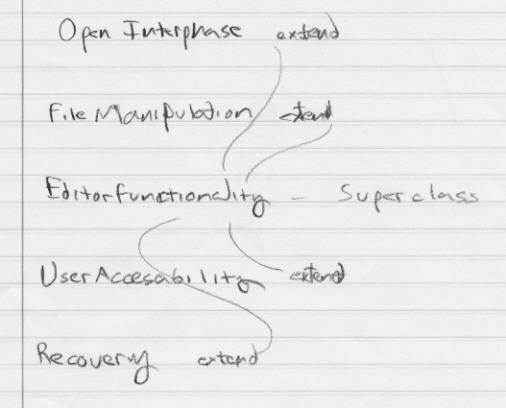 Open Interphase extend
File Manipulation extend
EditorFunctionality - Superclass
UserAccesability extend
Recovery extend